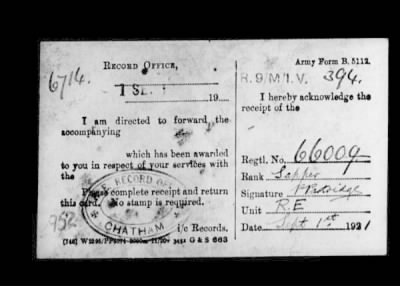 6714.
RECORD OFFICE,
1 SE
19
I am directed to forward the
accompanying
which has been awarded
to you in respect of your services with
the
Please complete receipt and return
this card. No stamp is required.
RECORD OF
CHATHAM
952
i/c Records.
G & S 663
Army Form B. 5112.
R.9/M/I.V. 394.
I hereby acknowledge the
receipt of the
Regtl. No. 66009
Rank Sapper
Signature Partridge
Unit R.E
Date Sept 1st 1921